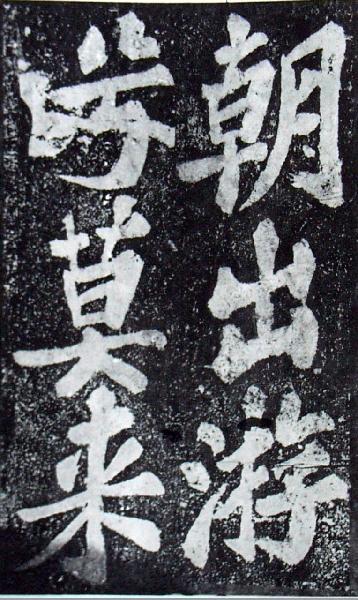 朝出游
兮莫来